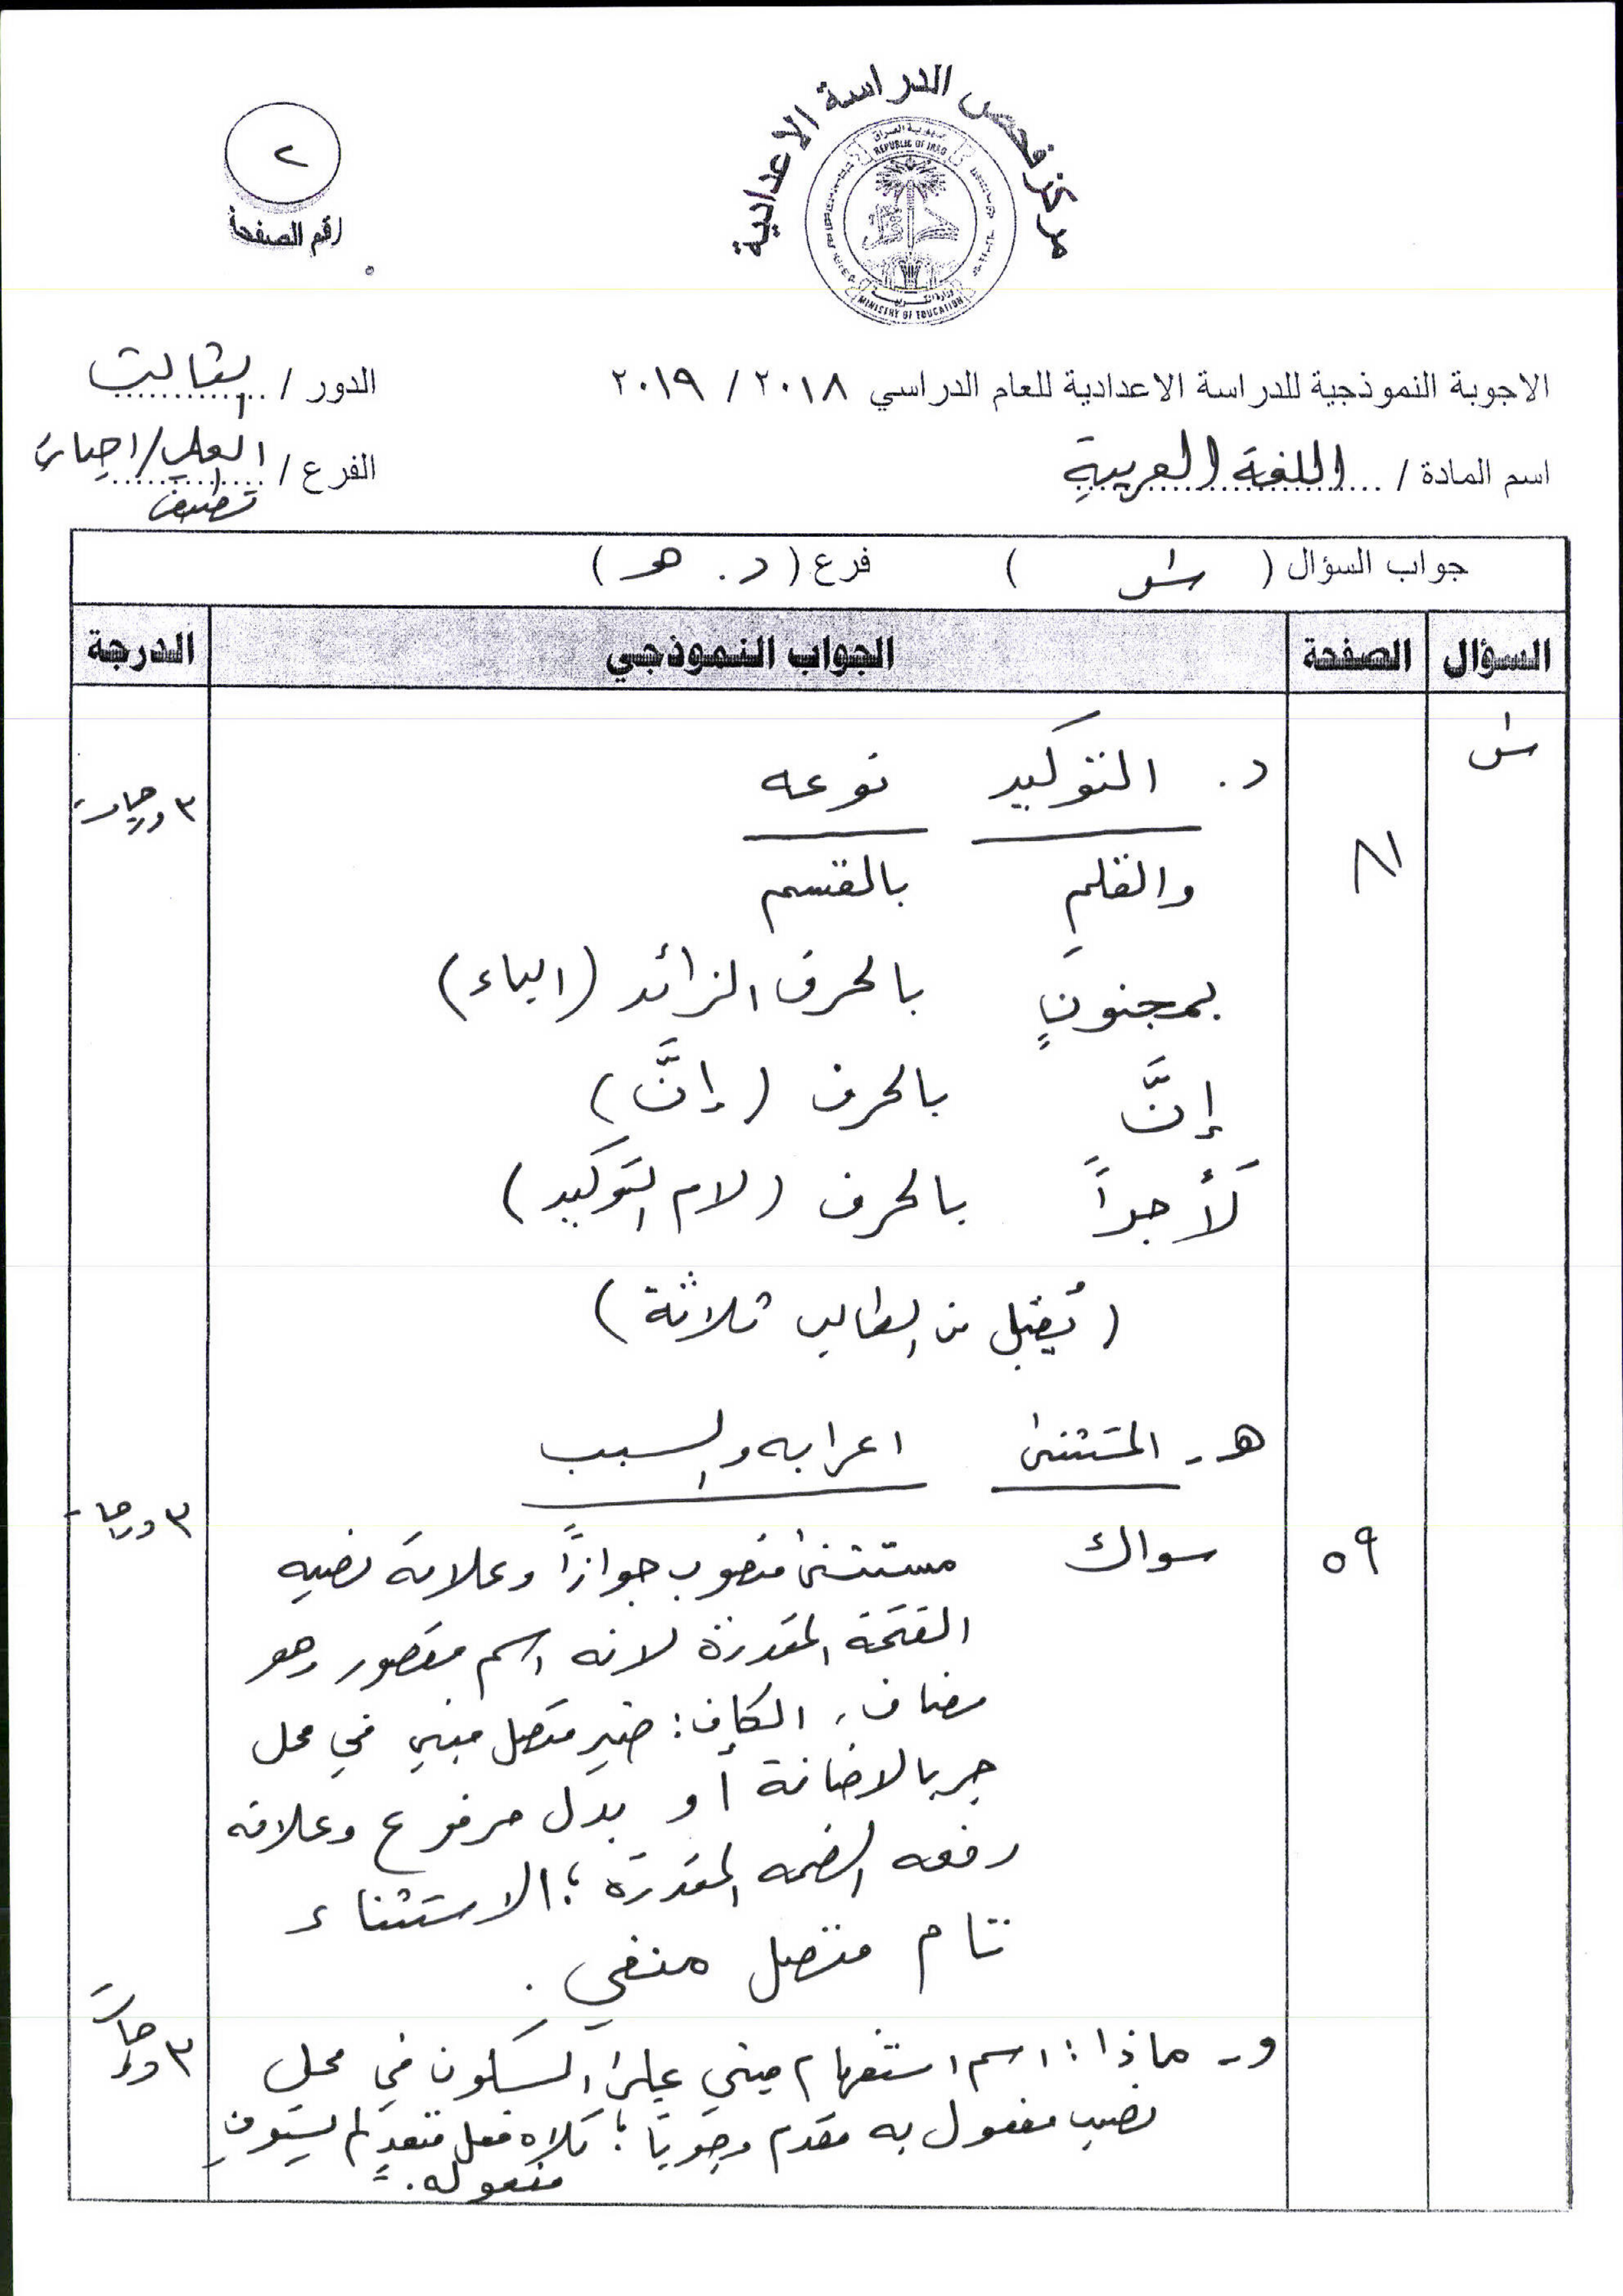 مركز فحص الدراسة الاعدادية
جمهورية العراق
REPUBLIC OF IRAQ
وزارة التربية
MINISTRY OF EDUCATION
٢
رقم الصفحة
الاجوبة النموذجية للدراسة الاعدادية للعام الدراسي ٢٠١٨ / ٢٠١٩
الدور / الثالث
اسم المادة / اللغة العربية
الفرع / العلمي/احيائي
تطبيقي
جواب السؤال ( س١ ) فرع ( د . هـ )
السؤال الصفحة الجواب النموذجي الدرجة
س١
د . التوكيد نوعه
٣ درجات
٨١
والقلمِ بالقسم
بمجنونٍ بالحرف الزائد (الباء)
إنَّ بالحرف (إنَّ)
لَأجراً بالحرف (لام التوكيد)
(يُقبل من الطالب ثلاثة)
هـ - المستثنى اعرابه والسبب
٣ درجات
٥٩
سواك مستثنى منصوب جوازاً وعلامة نصبه
الفتحة المقدرة لانه اسم مقصور وهو
مضاف، الكاف: ضمير متصل مبني في محل
جر بالاضافة أو بدل مرفوع وعلامة
رفعه الضمه المقدرة ؛ الاستثناء
تام متصل منفي .
و - ماذا : اسم استفهام مبني على السكون في محل
٣ درجات
نصب مفعول به مقدم وجوباً ؛ تلاه فعل متعدٍ لم يستوفِ
مفعوله .